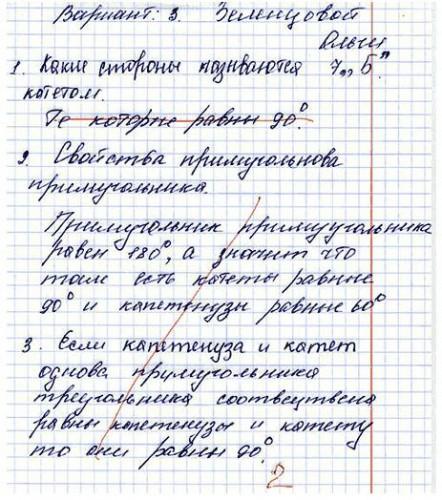 Вариант: 3. Зеленцовой
Ольги
1. Какие стороны называются 7„Б"
катетом.
Те которые равны 90°.
2. Свойства примугольнова
примугольника.
Примугольник примуугольника
равен 180°, а значит что
там есть катеты равные
90° и капетенузы равные 60°
3. Если капетенуза и катет
однова примугольника
треугольника соотвецтвена
равны капетенузы и катету
то они равны 90°.
2